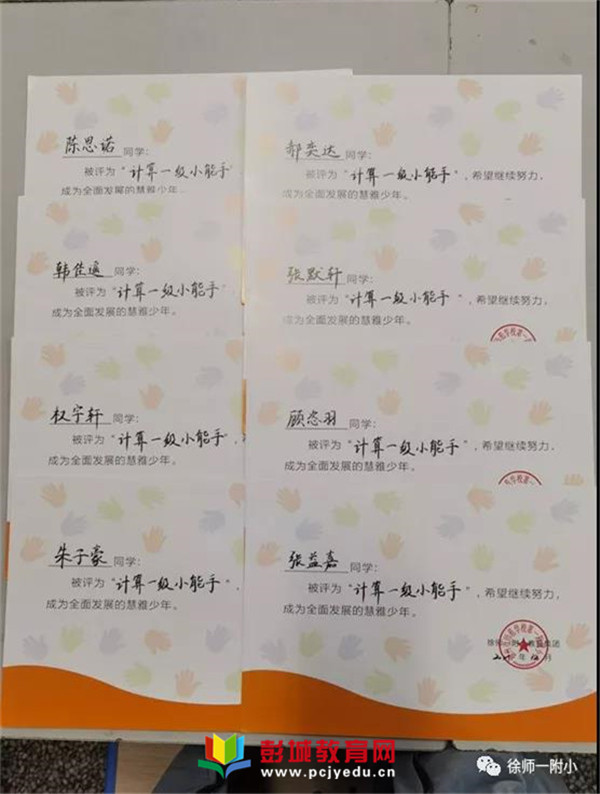 陈思诺 同学:
被评为“计算一级小能手”
成为全面发展的慧雅少年。
郝奕达同学:
被评为“计算一级小能手”,希望继续努力,
成为全面发展的慧雅少年。
韩佳遥 同学:
被评为“计算一级小能手”
成为全面发展的慧雅少年。
张默轩同学:
被评为“计算一级小能手”,希望继续努力,
成为全面发展的慧雅少年。
权宇轩 同学:
被评为“计算一级小能手”,
成为全面发展的慧雅少年。
顾恣羽 同学:
被评为“计算一级小能手”,希望继续努力,
成为全面发展的慧雅少年。
朱子豪 同学:
被评为“计算一级小能手”,
成为全面发展的慧雅少年。
张益嘉 同学:
被评为“计算一级小能手”,希望继续努力,
成为全面发展的慧雅少年。
彭城教育网
www.pcjyedu.cn
徐师一附小